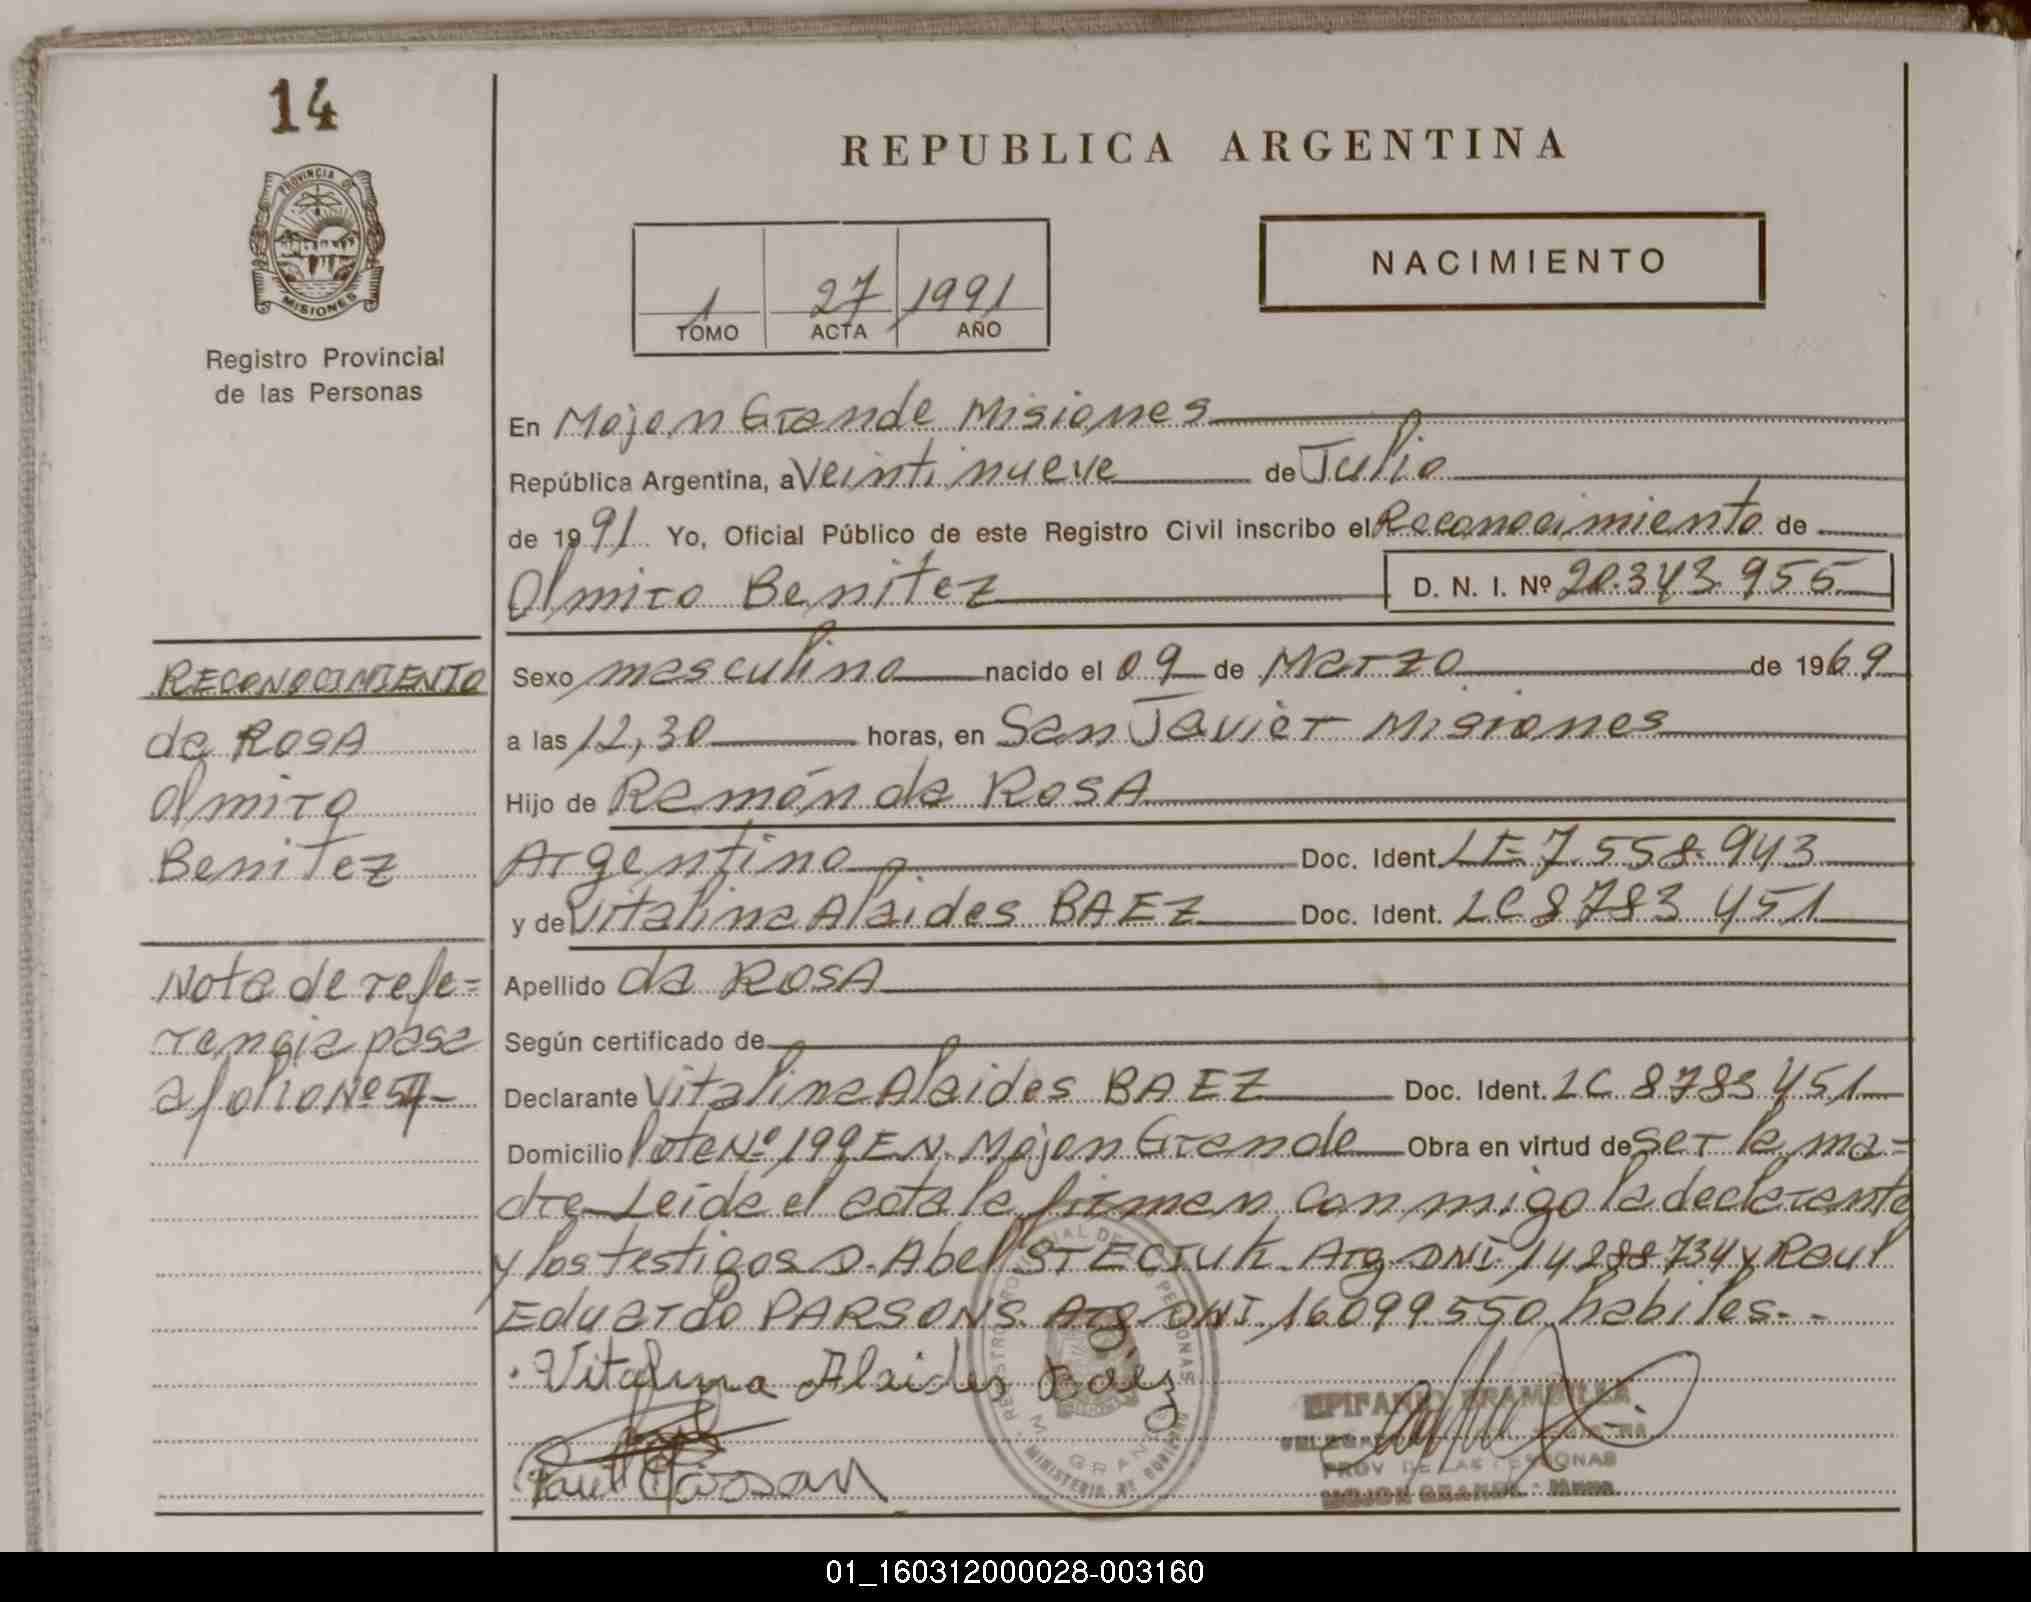 14
PROVINCIA DE
MISIONES
Registro Provincial
de las Personas
REPUBLICA ARGENTINA
1 27 1991
TOMO ACTA AÑO
NACIMIENTO
En Mojon Grande Misiones
República Argentina, a Veinti nueve de Julio
de 1991 Yo, Oficial Público de este Registro Civil inscribo el Reconocimiento de
Olmiro Benitez D. N. I. Nº 20.343.955
RECONOCIMIENTO
da ROSA
Olmiro
Benitez
Sexo masculino nacido el 09 de Marzo de 1969
a las 12,30 horas, en San Javier Misiones
Hijo de Ramón da ROSA
Argentino Doc. Ident. LE 7.558.943
y de Vitalina Alaides BAEZ Doc. Ident. LC 8783 451
Nota de refe=
rencia pasa
a folio Nº 54-
Apellido da ROSA
Según certificado de
Declarante Vitalina Alaides BAEZ Doc. Ident. LC 8783 451
Domicilio lote Nº 199 E.N. Mojon Grande Obra en virtud de ser la ma=
dre Leida el acta la firman con migo la declarante
y los testigos D. Abel STECIUK Arg. DNI. 14288734 y Raul
Eduardo PARSONS. Arg. DNI. 16099.550 habiles--
Vitalina Alaides Baez
EPIFANIO BRAMBILLA
PROV DE LAS PERSONAS
MOJON GRANDE - Mnes.
REGISTRO PERSONAS
M. GRANDE
MINISTERIO DE GOBIERNO
Raul
01_160312000028-003160